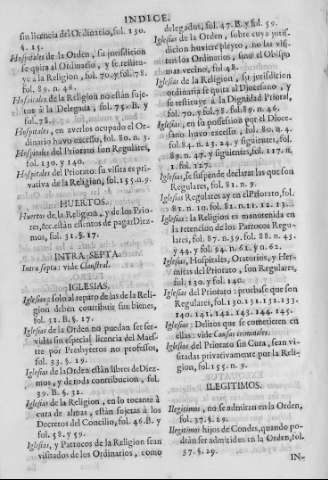 INDICE.
sin licencia del Ordinario, fol. 130.
§. 15.
Hospitales de la Orden, su jurisdicion
se quita al Ordinario, y se restituye
a la Religion, fol. 70. y fol. 78.
fol. 89. n. 46.
Hospitales de la Religion no estàn sujetos
à la Delegata, fol. 75. B. y
fol. 78.
Hospitales, en averlos ocupado el Ordinario
havo excesso, fol. 80. n. 3.
Hospitales del Priorato son Regulares,
fol. 130. y 140.
Hospitales del Priorato su visita es privativa
de la Religion, fol. 155. n. 9.
HUERTOS.
Huertos de la Religion, y de los Priores,
&c. estàn essentos de pagar Diezmos,
fol. 31. §. 17.
INTRA SEPTA.
Intra septa: vide Claustral.
IGLESIAS.
Iglesias; solo al reparo de las de la Religion
deben contribuir sus bienes,
fol. 31. B. §. 17.
Iglesias de la Orden no puedan ser servidas
sin especial licencia del Maestre
por Presbyteros no professos,
fol. 33. §. 19.
Iglesias de la Orden estàn libres de Diezmos,
y de toda contribucion, fol.
39. B. §. 32.
Iglesias de la Religion, en lo tocante à
cura de almas, estàn sujetas à los
Decretos del Concilio, fol. 46. B. y
fol. 58. y 59.
Iglesias, y Parrocos de la Religion sean
visitados de los Ordinarios, como
delegados, fol. 47. B. y fol. 59.
Iglesias de la Orden, sobre cuya jurisdicion
huviere pleyto, no las visiten
los Ordinarios, sino el Obispo
mas vecino, fol. 48.
Iglesias de la Religion, su jurisdicion
ordinaria se quita al Diocesano, y
se restituye à la Dignidad Prioral,
fol. 70. y fol. 78. fol. 89. n. 46.
Iglesias, en su possession por el Diocesano
havo excesso, fol. 80. n. 4.
fol. 84. n. 23. 24. y siguientes, fol.
89. n. 47. y siguientes, fol. 117. n.
1. fol. 127.
Iglesias, se suspende declarar las que son
Regulares, fol. 81. n. 9.
Iglesias Regulares ay en el Priorato, fol.
81. n. 10. fol. 81. n. 11. 12. 13.
Iglesias: la Religion es manotenida en
la retencion de los Parrocos Regulares,
fol. 87. n. 39. fol. 88. n. 43.
y 44. y fol. 94. n. 61. y n. 62.
Iglesias, Hospitales, Oratorios, y Hermitas
del Priorato, son Regulares,
fol. 130. y fol. 140.
Iglesias del Priorato: pruebase que son
Regulares, fol. 130. 131. 132. 133.
140. 141. 142. 143. 144. 145.
Iglesias: Delitos que se cometieren en
ellas: vide Causas criminales.
Iglesias del Priorato sin Cura, sean visitadas
privativamente por la Religion,
fol. 155. n. 9.
ILEGITIMOS.
Ilegitimos, no se admitan en la Orden,
fol. 37. §. 29.
Ilegitimos hijos de Condes, quando podràn
ser admitidos en la Orden, fol.
37. §. 29.
IN-